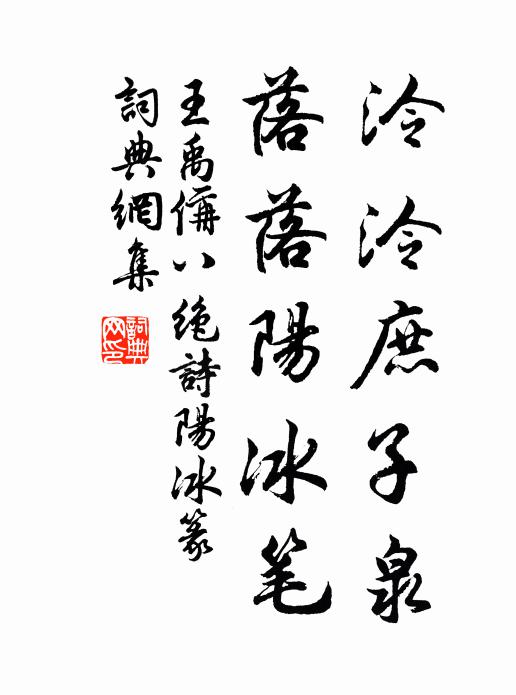 泠泠庶子泉
落落陽冰笔
王禹偁八絶詩陽冰篆
詞典網集
詞典網印